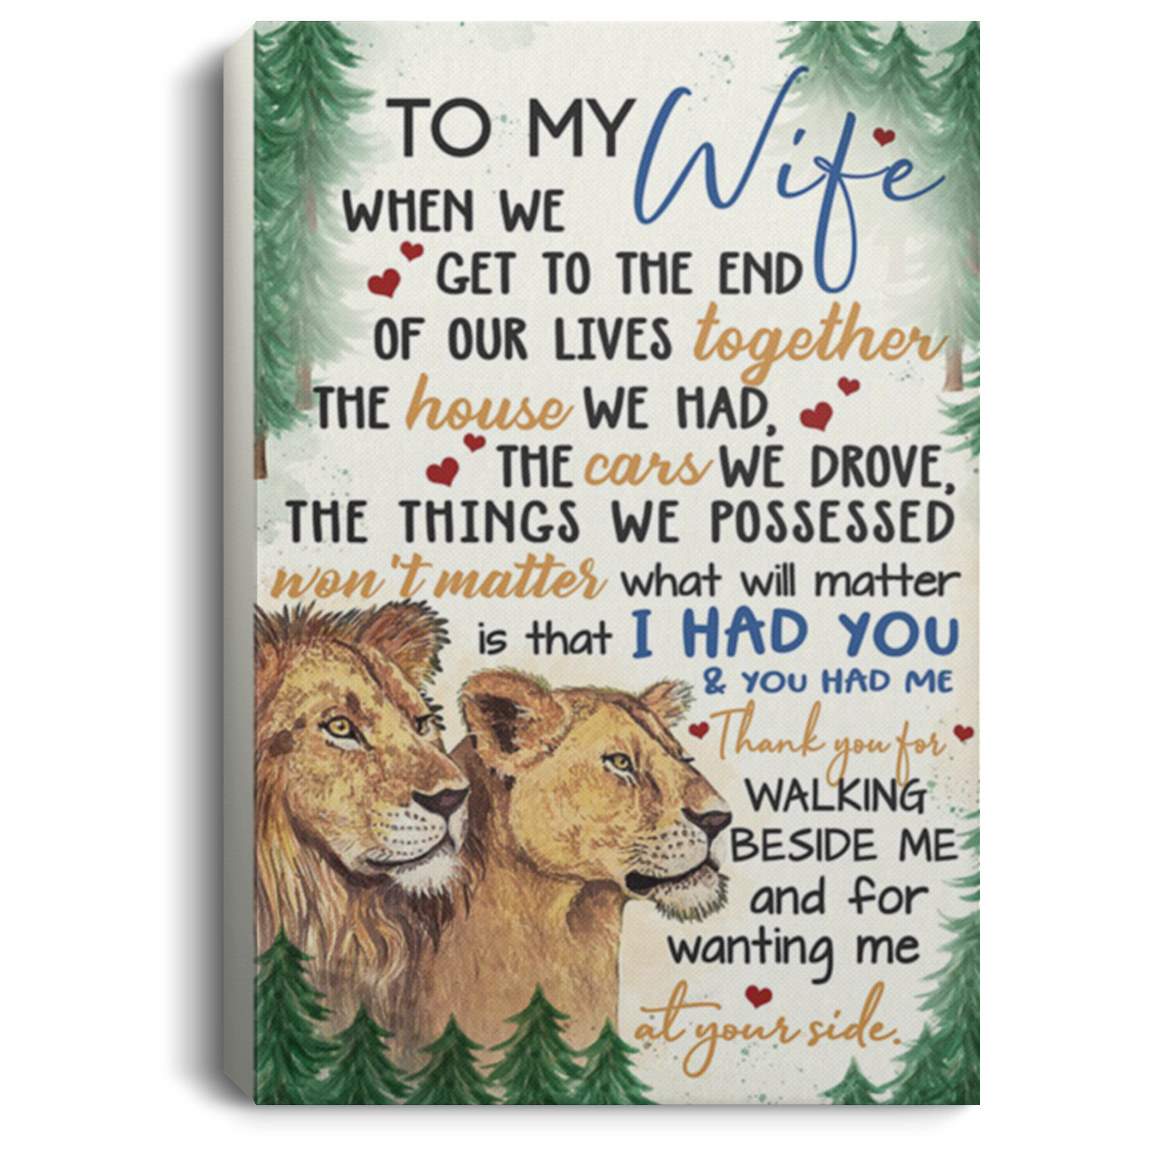 TO MY Wife
WHEN WE
GET TO THE END
OF OUR LIVES together
THE house WE HAD,
THE cars WE DROVE,
THE THINGS WE POSSESSED
won't matter what will matter
is that I HAD YOU
& YOU HAD ME
Thank you for
WALKING
BESIDE ME
and for
wanting me
at your side.